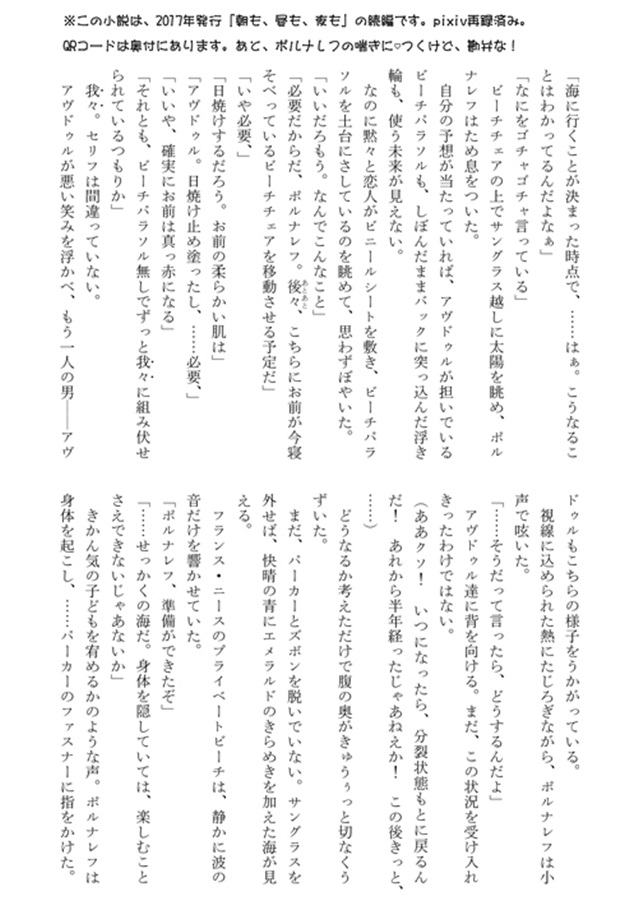 ※この小説は、2017年発行『朝も、昼も、夜も』の続編です。pixiv再録済み。
QRコードは奥付にあります。あと、ポルナレフの喘ぎに♡つくけど、勘弁な！
「海に行くことが決まった時点で、……はぁ。こうなるこ
とはわかってるんだよなぁ」
「なにをゴチャゴチャ言っている」
　ビーチチェアの上でサングラス越しに太陽を眺め、ポル
ナレフはため息をついた。
　自分の予想が当たっていれば、アヴドゥルが担いでいる
ビーチパラソルも、しぼんだままバックに突っ込んだ浮き
輪も、使う未来が見えない。
　なのに黙々と恋人がビニールシートを敷き、ビーチパラ
ソルを土台にさしているのを眺めて、思わずぼやいた。
「いいだろもう。なんでこんなこと」
「必要だからだ、ポルナレフ。後々、こちらにお前が今寝
あとあと
そべっているビーチチェアを移動させる予定だ」
「いや必要、」
「日焼けするだろう。お前の柔らかい肌は」
「アヴドゥル。日焼け止め塗ったし、……必要、」
「いいや、確実にお前は真っ赤になる」
「それとも、ビーチパラソル無しでずっと我々に組み伏せ
られているつもりか」
　我々。セリフは間違っていない。
　アヴドゥルが悪い笑みを浮かべ、もう一人の男――アヴ
ドゥルもこちらの様子をうかがっている。
　視線に込められた熱にたじろぎながら、ポルナレフは小
声で呟いた。
「……そうだって言ったら、どうするんだよ」
　アヴドゥル達に背を向ける。まだ、この状況を受け入れ
きったわけではない。
（ああクソ！　いつになったら、分裂状態もとに戻るん
だ！　あれから半年経ったじゃあねえか！　この後きっと、
……）
　どうなるか考えただけで腹の奥がきゅうぅっと切なくう
ずいた。
　まだ、パーカーとズボンを脱いでいない。サングラスを
外せば、快晴の青にエメラルドのきらめきを加えた海が見
える。
　フランス・ニースのプライベートビーチは、静かに波の
音だけを響かせていた。
「ポルナレフ、準備ができたぞ」
「……せっかくの海だ。身体を隠していては、楽しむこと
さえできないじゃあないか」
　きかん気の子どもを宥めるかのような声。ポルナレフは
身体を起こし、……パーカーのファスナーに指をかけた。